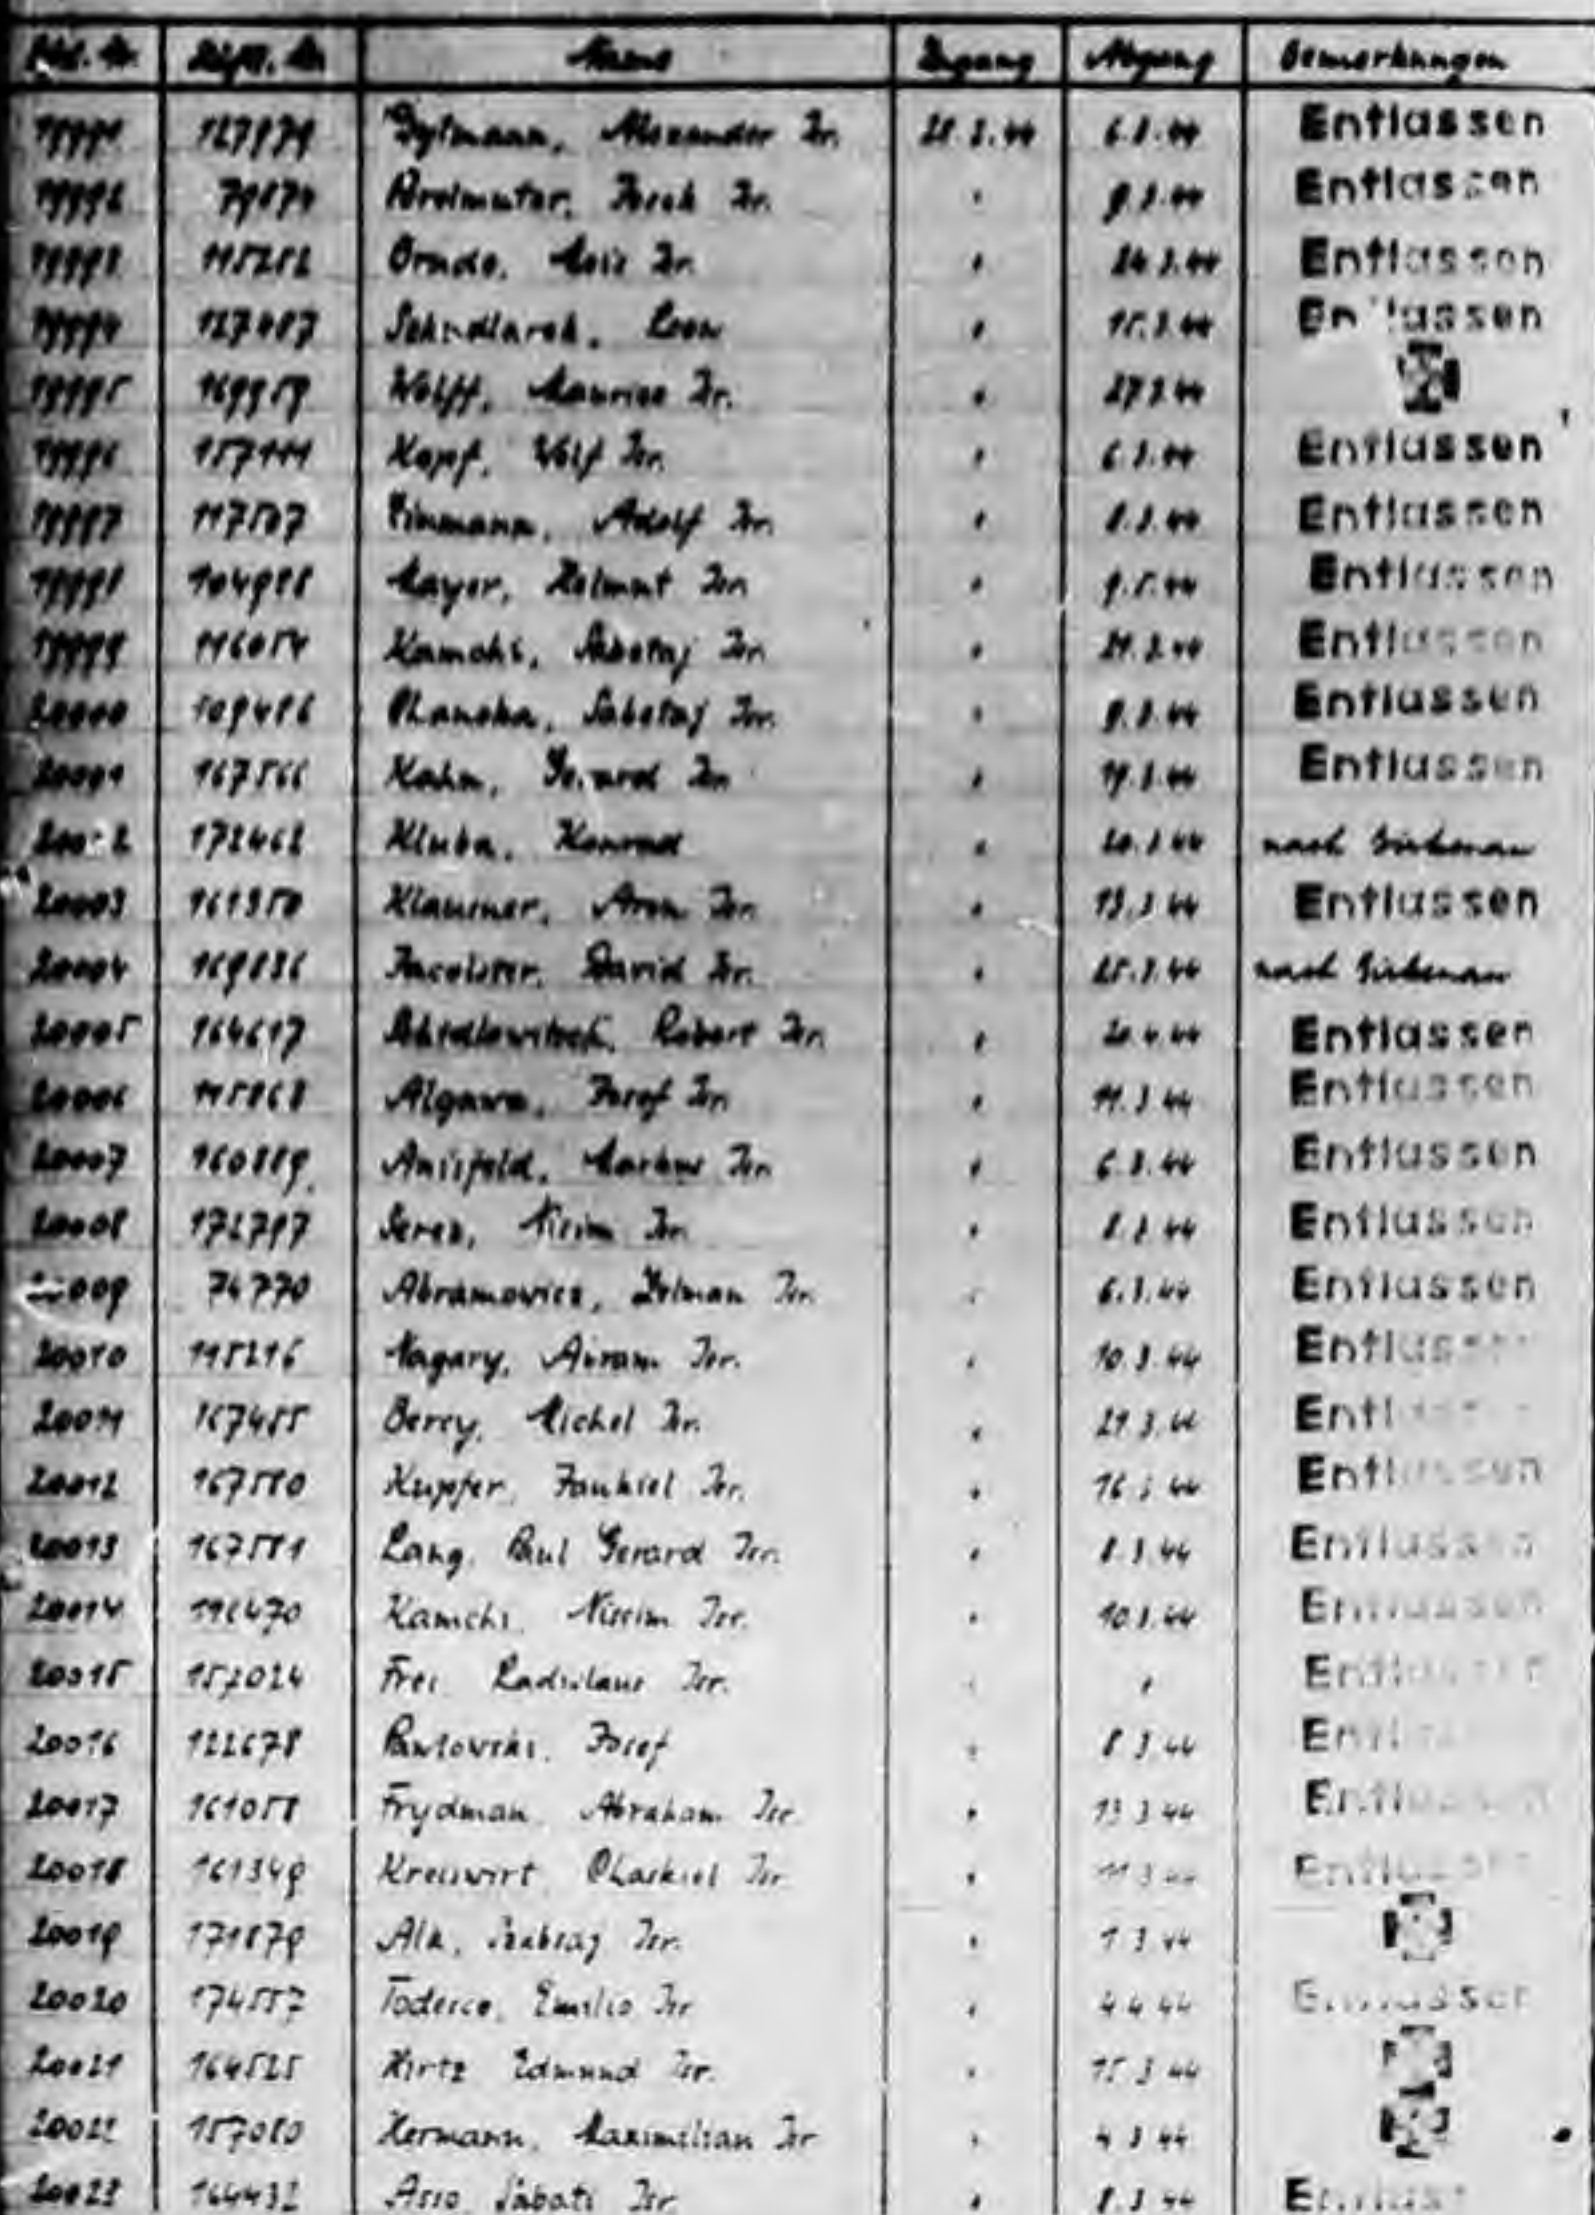 Lfd. Nr. Häftl. Nr. Name Zugang Abgang Bemerkungen
19991 127979 Alexander Isr. 28.2.44 6.3.44 Entlassen
19992 Isr. " 9.3.44 Entlassen
19993 115212 Isr. " 24.3.44 Entlassen
19994 " 15.3.44 Entlassen
19995 169959 Wolff, Maurice Isr. " 27.3.44
19996 Kopf, Wolf Isr. " 6.3.44 Entlassen
19997 117507 Adolf Isr. " 8.3.44 Entlassen
19998 104988 Mayer, Helmut Isr. " Entlassen
19999 116054 Kamchi, Sabetaj Isr. " Entlassen
20000 109486 Sabetaj Isr. " 9.3.44 Entlassen
20001 167566 Kahn, Gerard Isr. " 19.3.44 Entlassen
20002 172462 Kluba, Konrad " 20.3.44 nach Birkenau
20003 161350 Klausner, Aron Isr. " 13.3.44 Entlassen
20004 169836 David Isr. " 25.3.44 nach Birkenau
20005 164617 Robert Isr. " 20.4.44 Entlassen
20006 115868 Algawa, Josef Isr. " 11.3.44 Entlassen
20007 160889 Anisfeld, Markus Isr. " 6.3.44 Entlassen
20008 172797 Isr. " 8.3.44 Entlassen
20009 74770 Abramowicz, Zelman Isr. " 6.3.44 Entlassen
20010 115216 Nagary, Avram Isr. " 10.3.44 Entlassen
20011 167455 Bercy, Michel Isr. " 29.3.44 Entlassen
20012 167580 Kupfer, Jankiel Isr. " 16.3.44 Entlassen
20013 167581 Lang, Paul Gerard Isr. " 8.3.44 Entlassen
20014 116470 Kamchi, Nissim Isr. " 10.3.44 Entlassen
20015 157024 Frei, Ladislaus Isr. " " Entlassen
20016 122678 Pawlowski, Josef " 8.3.44 Entlassen
20017 161058 Frydman, Abraham Isr. " 13.3.44 Entlassen
20018 161349 Kreiswirt, Chaskiel Isr. " 11.3.44 Entlassen
20019 171879 Isr. " 1.3.44
20020 174557 Todesco, Emilio Isr. " 4.4.44 Entlassen
20021 164525 Hirtz, Edmund Isr. " 15.3.44
20022 157080 Hermann, Maximilian Isr. " 4.3.44
20023 164432 Asso, Sabati Isr. " 8.3.44 Entlassen